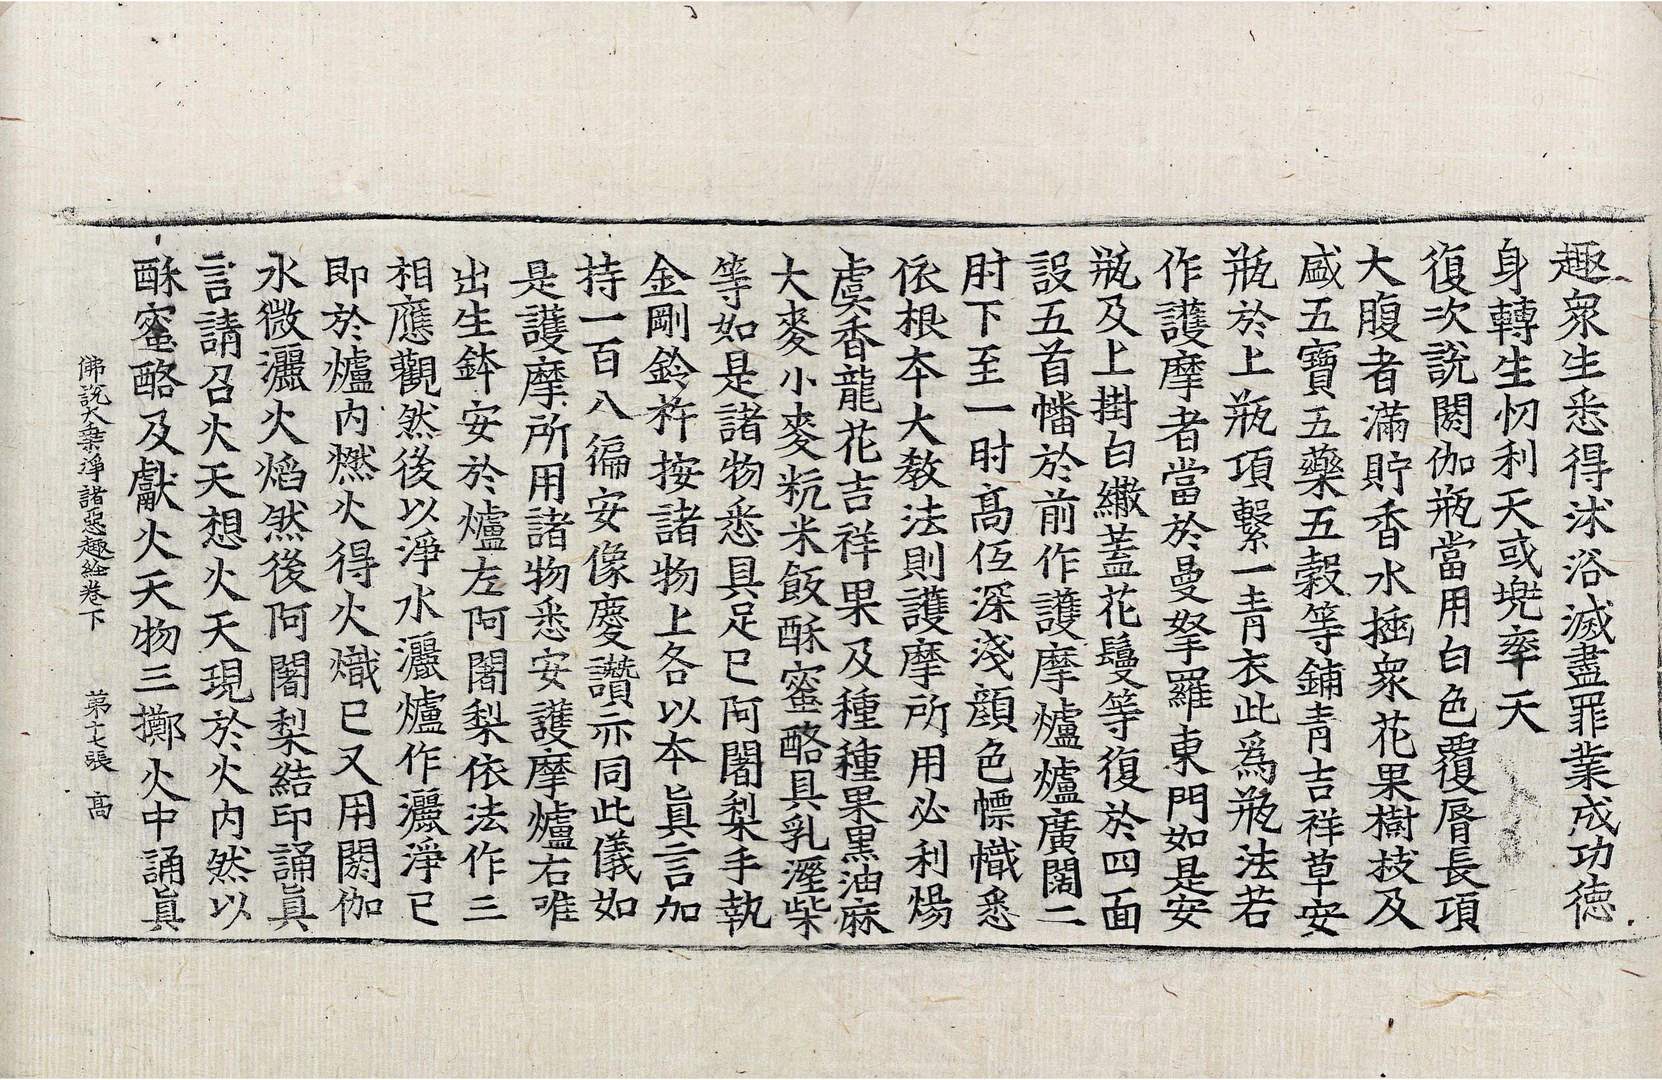 趣衆生悉得沐浴滅盡罪業成功德
身轉生忉利天或兜率天
復次說閼伽瓶當用白色覆脣長項
大腹者滿貯香水揷衆花果樹技及
盛五寶五藥五穀等鋪青吉祥草安
瓶於上瓶項繫一青衣此爲瓶法若
作護摩者當於曼拏羅東門如是安
瓶及上掛白繖蓋花鬘等復於四面
設五首幡於前作護摩爐爐廣闊二
肘下至一肘高低深淺顔色幖幟悉
依根本大教法則護摩所用必利煬
虞香龍花吉祥果及種種果黑油麻
大麥小麥粇米飯酥蜜酪具乳溼柴
等如是諸物悉具足已阿闍梨手執
金剛鈴杵按諸物上各以本眞言加
持一百八徧安像慶讚亦同此儀如
是護摩所用諸物悉安護摩爐右唯
出生鉢安於爐左阿闍梨依法作三
相應觀然後以淨水灑爐作灑淨已
即於爐内燃火得火熾已又用閼伽
水微灑火焰然後阿闍梨結印誦眞
言請召火天想火天現於火内然以
酥蜜酪及獻火天物三擲火中誦眞
佛說大乗淨諸惡趣経卷下 第十七張 高